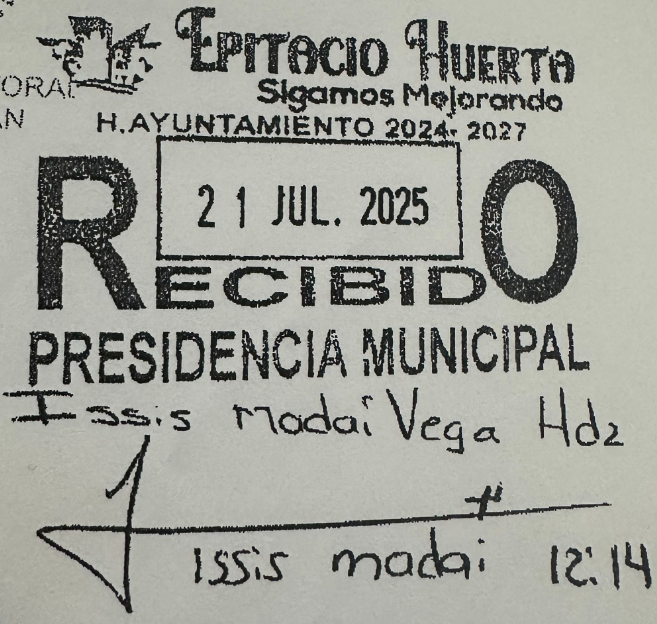 EPITACIO HUERTA
Sigamos Mejorando
ORAL
AN
H.AYUNTAMIENTO 2024-2027
21 JUL. 2025
RECIBIDO
PRESIDENCIA MUNICIPAL
Issis Madai Vega Hdz
Issis madai 12:14